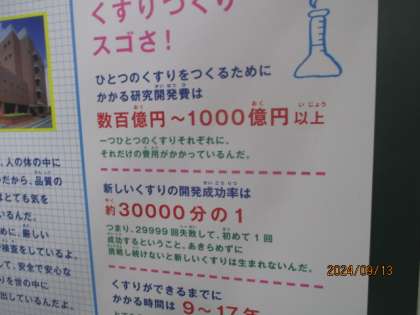 くすりづくり
スゴさ！
ひとつのくすりをつくるために
かかる研究開発費は
数百億円～1000億円以上
一つひとつのくすりそれぞれに、
それだけの費用がかかっているんだ。
新しいくすりの開発成功率は
約30000分の1
つまり、29999回失敗して、初めて1回
成功するということ。あきらめずに
挑戦し続けないと新しいくすりは生まれないんだ。
くすりができるまでに
かかる時間は 9～17年
、人の体の中に
だから、品質の
はとても気を
いるんだ。
めに、厳しい
検査をしているよ。
して、安全で安心な
りを世の中に
出しているんだよ。
2024/09/13